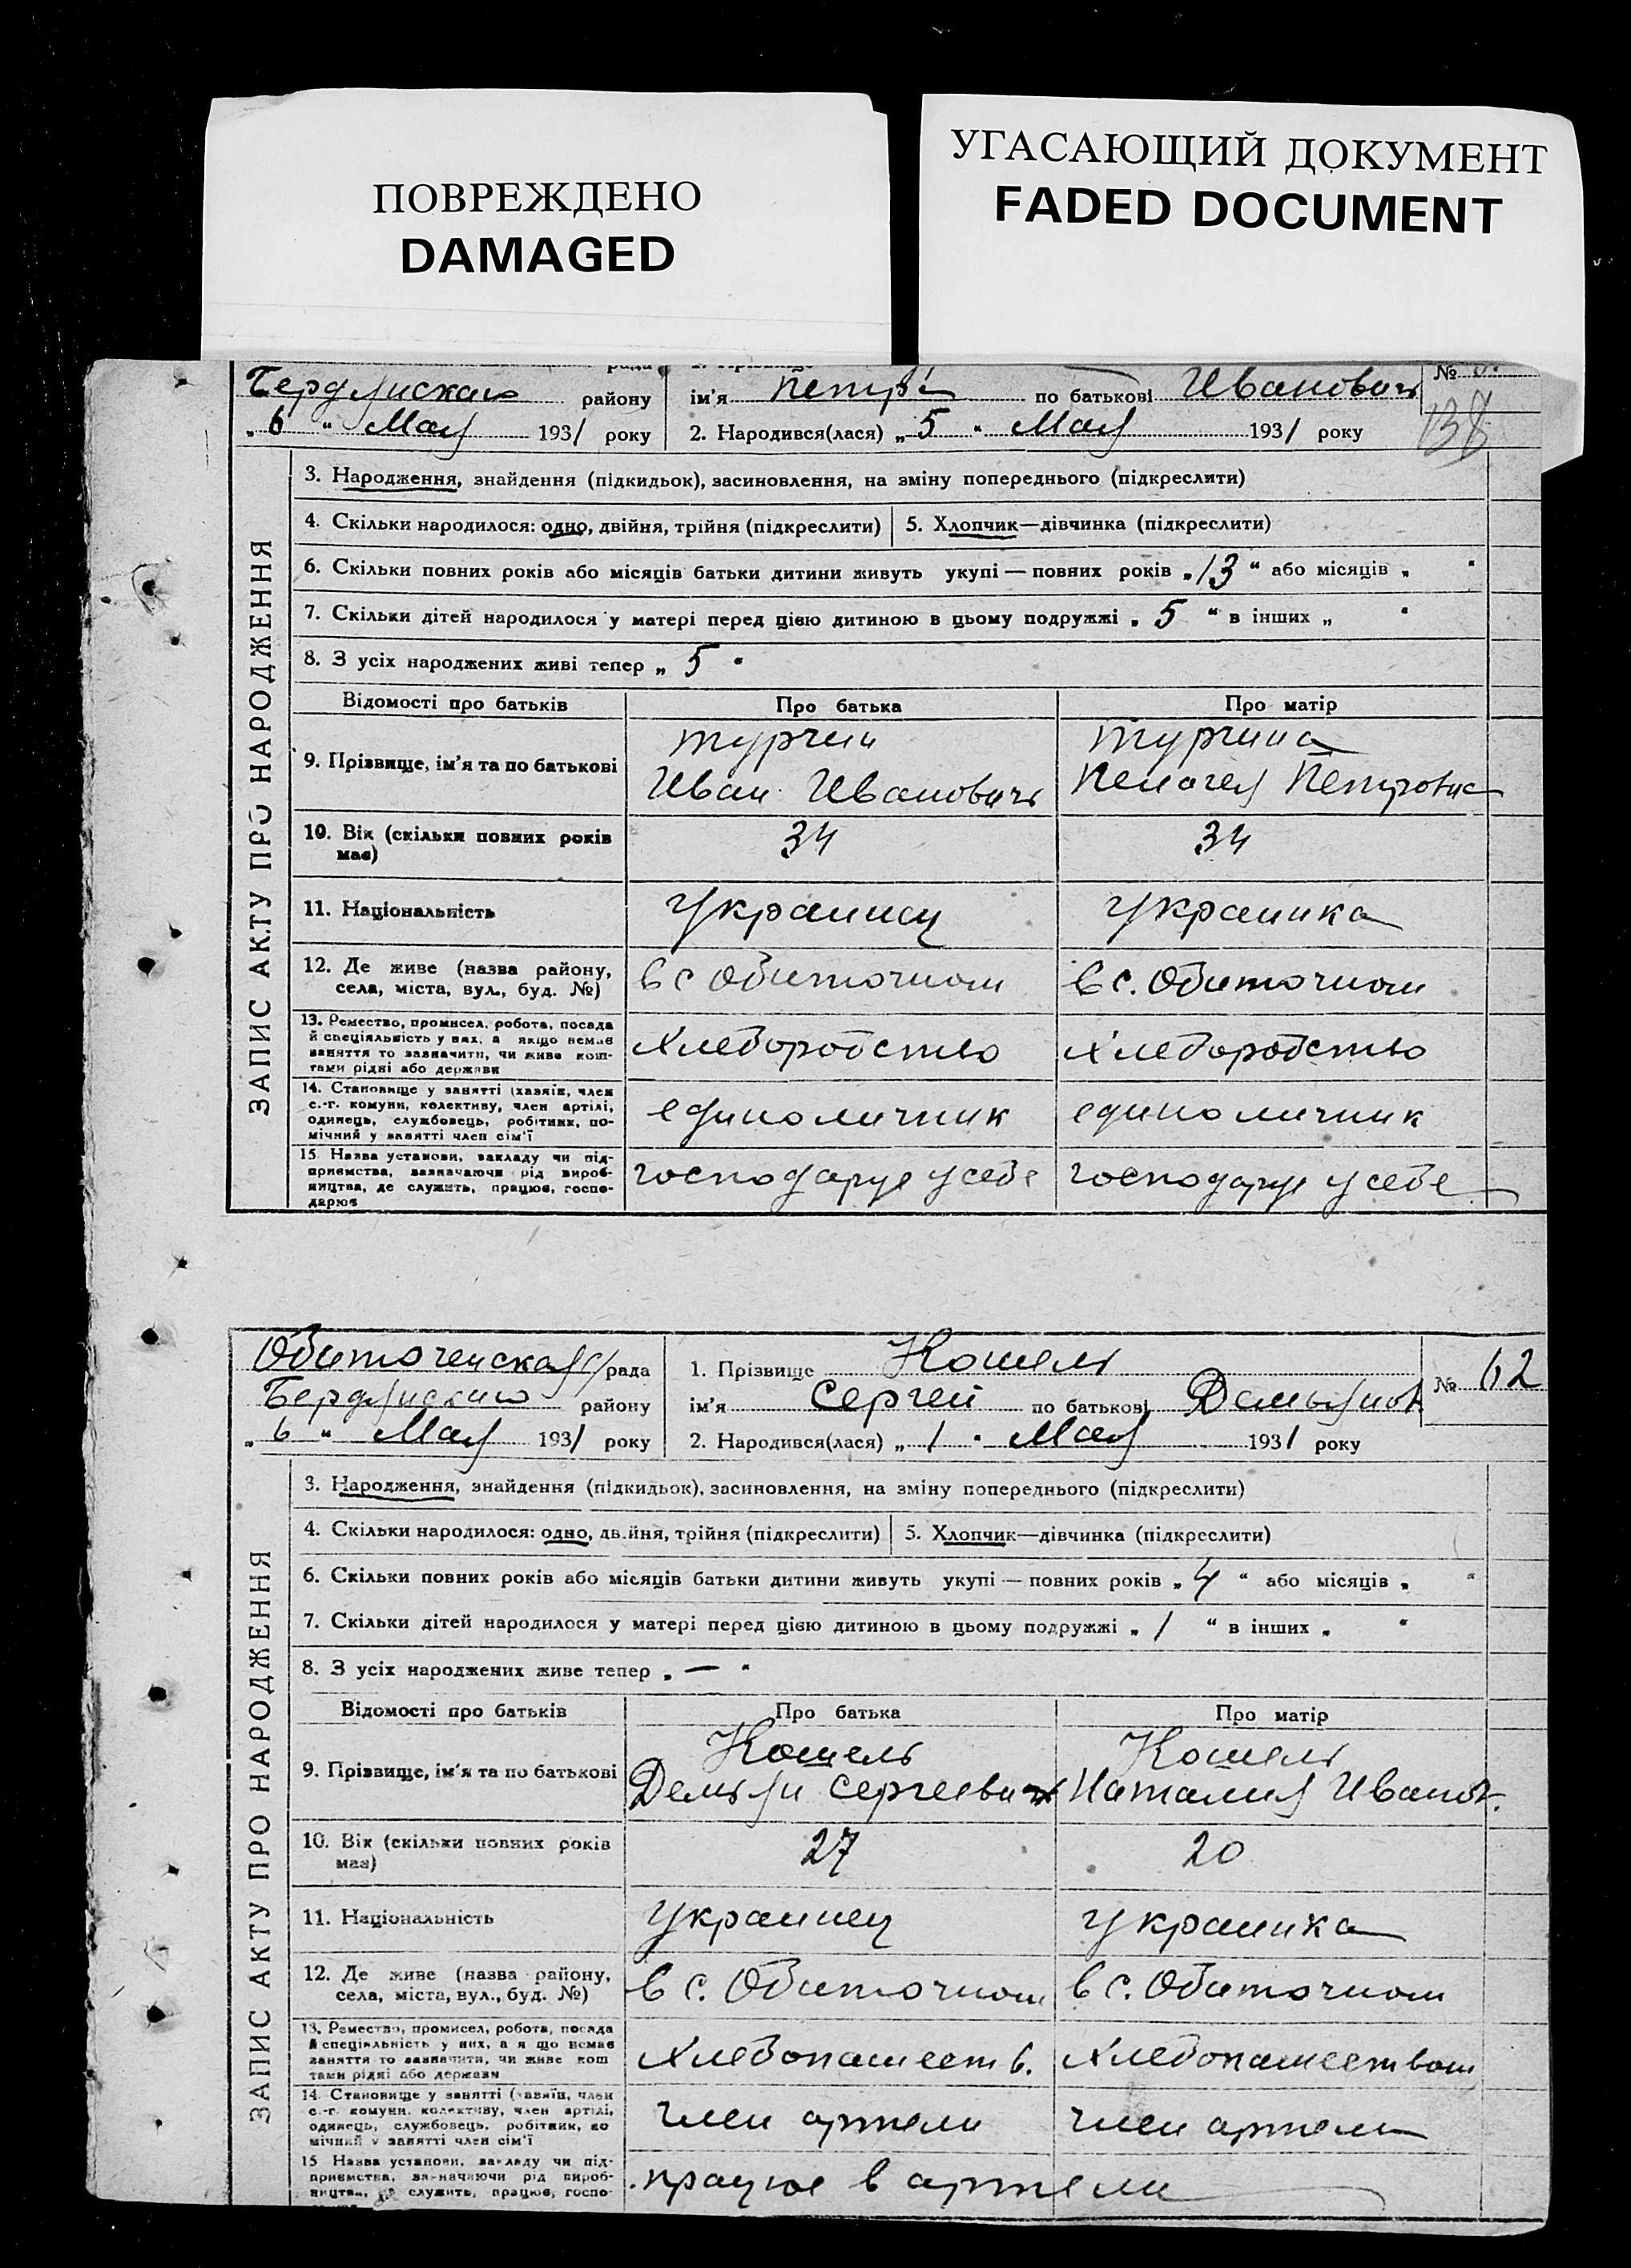 ПОВРЕЖДЕНО
DAMAGED
УГАСАЮЩИЙ ДОКУМЕНТ
FADED DOCUMENT
Бердянского району ім'я Петрѝ по батькові Иванович №
„6" Мая 1931 року 2. Народився(лася) „5" Мая 1931 року 138
ЗАПИС АКТУ ПРО НАРОДЖЕННЯ
3. Народження, знайдення (підкидьок), засиновлення, на зміну попереднього (підкреслити)
4. Скільки народилося: одно, двійня, трійня (підкреслити) 5. Хлопчик—дівчинка (підкреслити)
6. Скільки повних років або місяців батьки дитини живуть укупі — повних років „13" або місяців „ "
7. Скільки дітей народилося у матері перед цією дитиною в цьому подружжі „5" в інших „ "
8. З усіх народжених живі тепер „5"
Відомості про батьків Про батька Про матір
9. Прізвище, ім'я та по батькові
Турчин Турчина
Иван Иванович Пелагея Петровна
10. Вік (скільки повних років має) 34 34
11. Національність Украинец Украинка
12. Де живе (назва району, села, міста, вул., буд. №) в с Обиточном в с. Обиточном
13. Ремество, промисел, робота, посада й спеціяльність у них, а якщо немає заняття то зазначити, чи живе коштами рідні або держави Хлеборобство Хлеборобство
14. Становище у занятті (хазяїн, член с.-г. комуни, колективу, член артілі, одинець, службовець, робітник, помічний у занятті член сім'ї единоличник единоличник
15 Назва установи, закладу чи підприємства, зазначаючи рід виробництва, де служить, працює, господарює господарує у себе господарує у себе
Обиточенская рада 1. Прізвище Кошель № 62
Бердянского району ім'я Сергей по батькові Демьянов
„6" Мая 1931 року 2. Народився(лася) „1" Мая 1931 року
ЗАПИС АКТУ ПРО НАРОДЖЕННЯ
3. Народження, знайдення (підкидьок), засиновлення, на зміну попереднього (підкреслити)
4. Скільки народилося: одно, двійня, трійня (підкреслити) 5. Хлопчик—дівчинка (підкреслити)
6. Скільки повних років або місяців батьки дитини живуть укупі — повних років „4" або місяців „ "
7. Скільки дітей народилося у матері перед цією дитиною в цьому подружжі „1" в інших „ "
8. З усіх народжених живе тепер „—"
Відомості про батьків Про батька Про матір
9. Прізвище, ім'я та по батькові
Кошель Кошель
Демьян Сергеевич Наталия Иванов.
10. Вік (скільки повних років має) 27 20
11. Національність Украинец Украинка
12. Де живе (назва району, села, міста, вул., буд. №) в с. Обиточном в с. Обиточном
13. Ремество, промисел, робота, посада й спеціяльність у них, а якщо немає заняття то зазначити, чи живе коштами рідні або держави Хлебопашеств. Хлебопашеством
14. Становище у занятті (хазяїн, член с.-г. комуни, колективу, член артілі, одинець, службовець, робітник, помічний у занятті член сім'ї член артели член артели
15 Назва установи, закладу чи підприємства, зазначаючи рід виробництва, де служить, працює, госпо- працює в артели